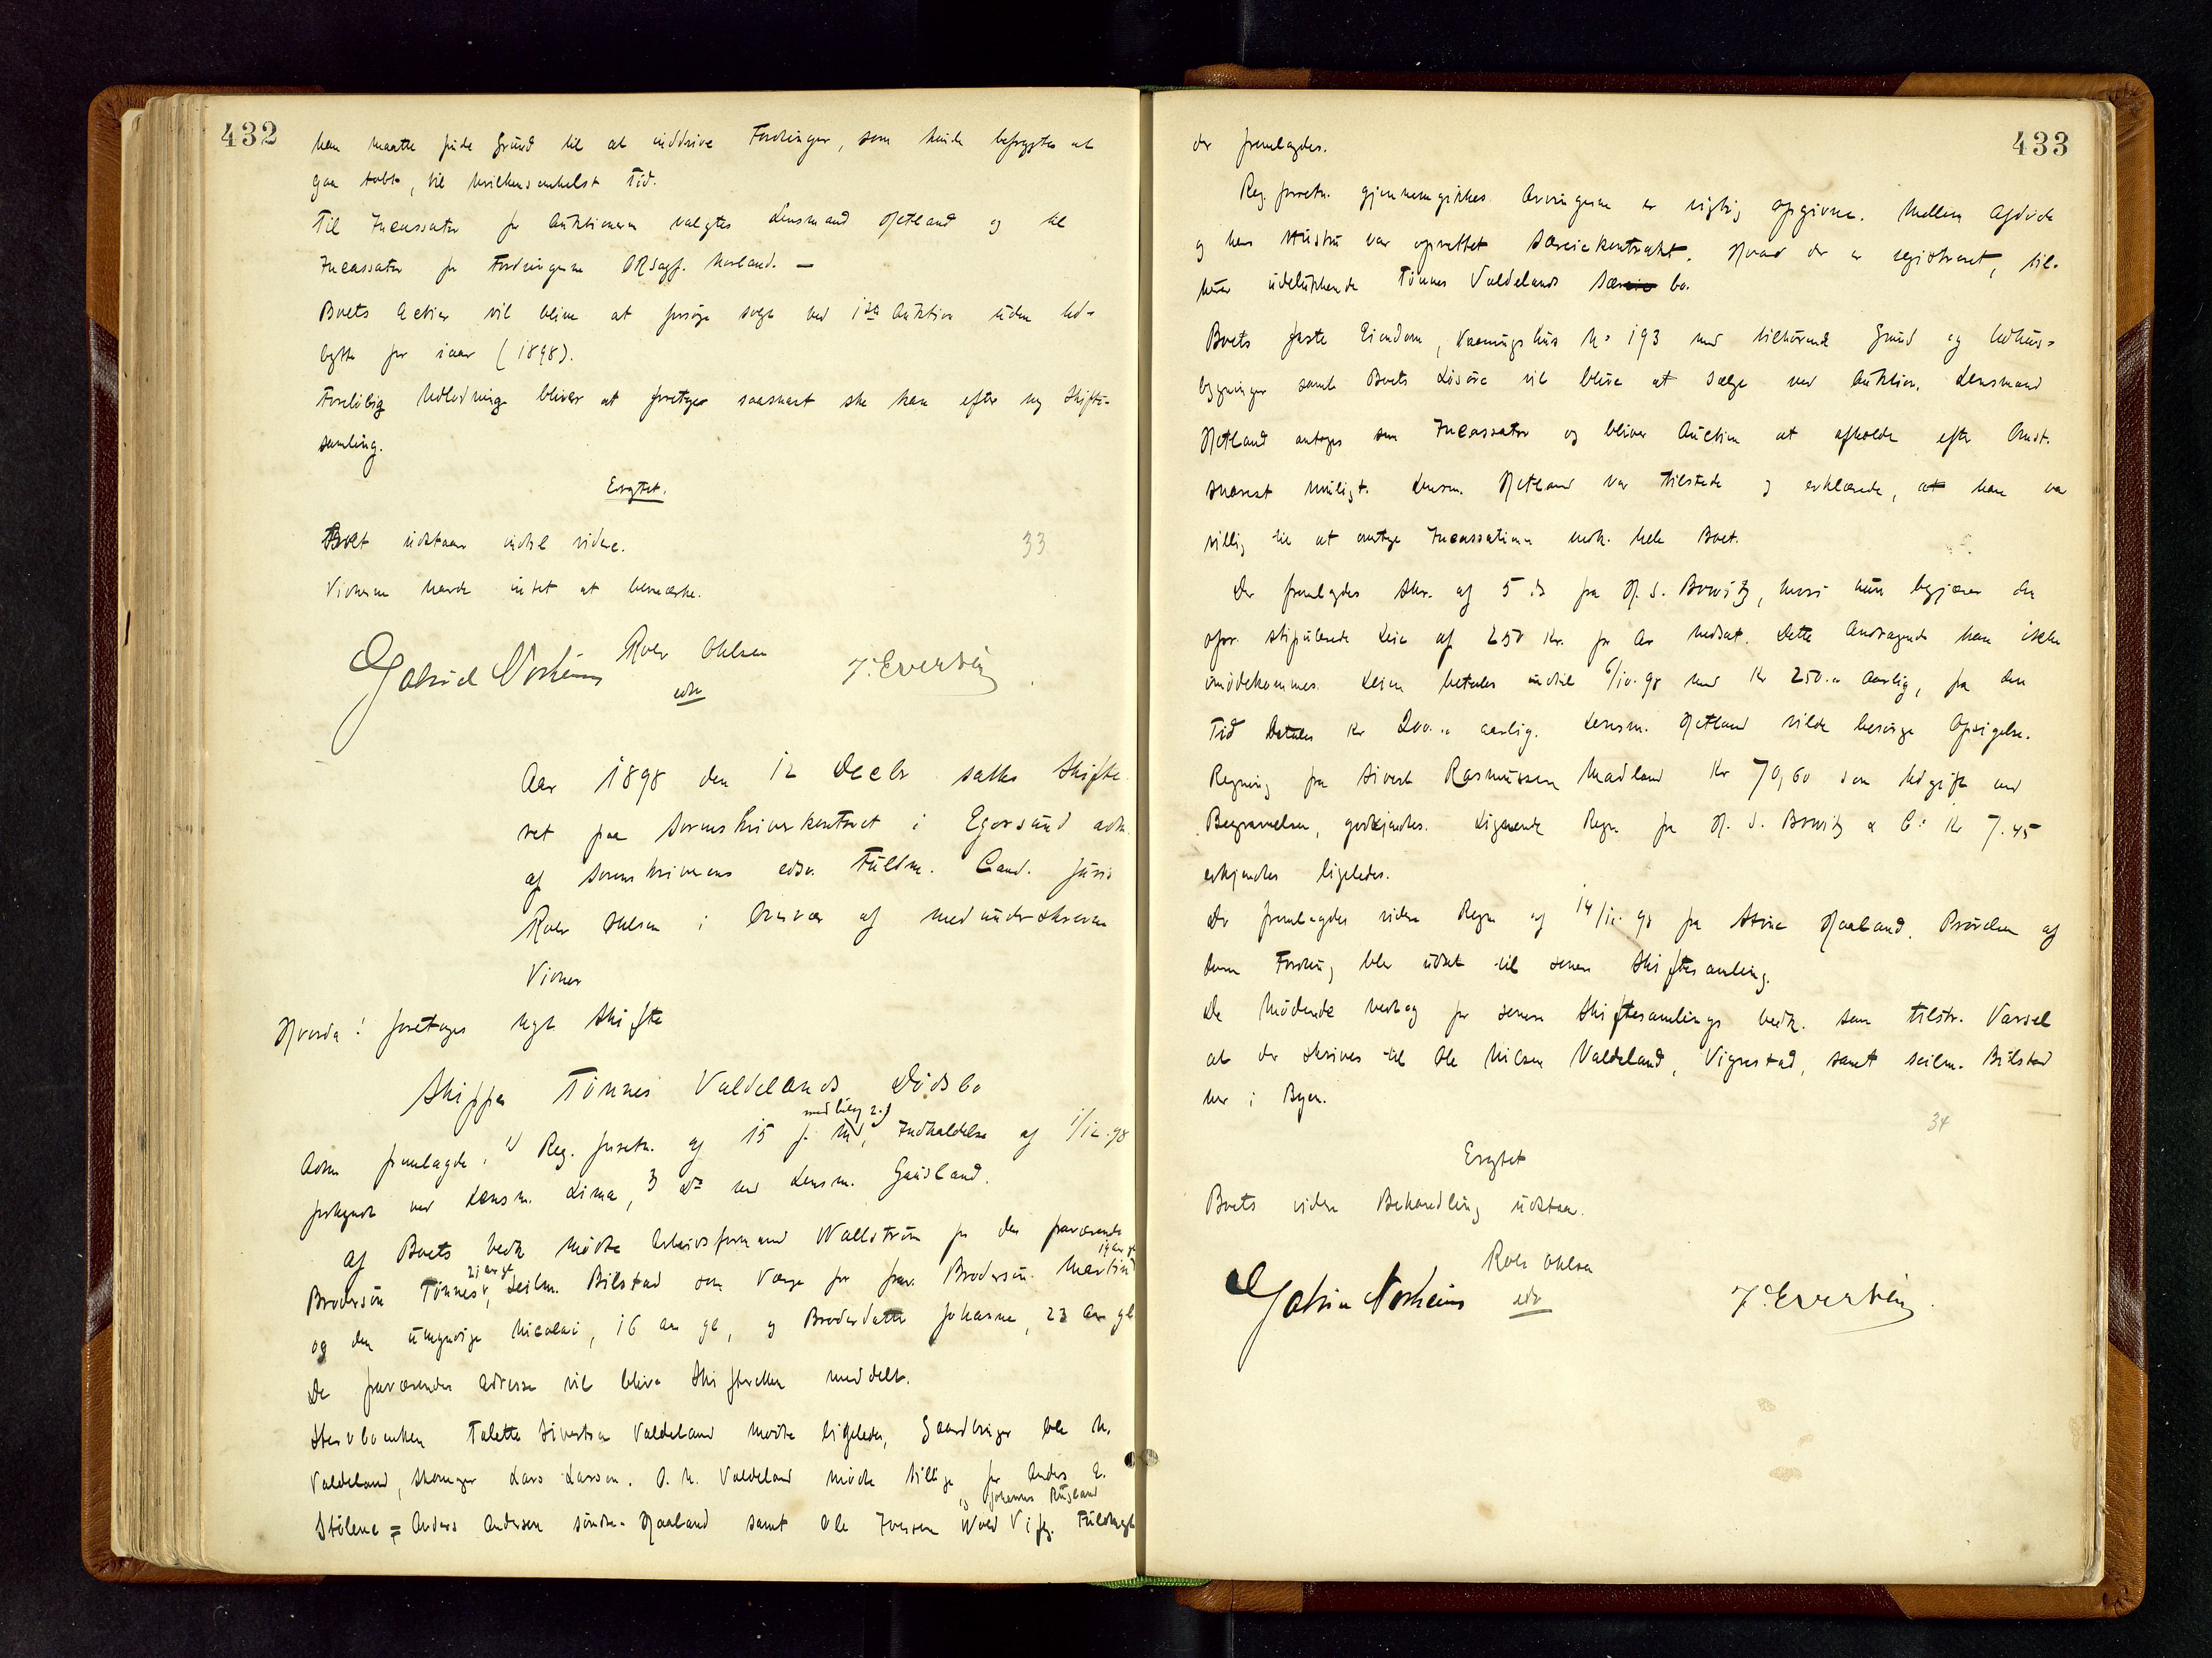 432
han maatte finde Grund til at inddrive Fordringer, som kunde befrygtes at
gaa tabt, til hvilkensomhelst Tid.
Til Incassator for Auktionen valgtes Lensmand Hetland og til
Incassator for Fordringerne ORSagf. Morland. —
Boets Actier vil blive at forsøge solgt ved 1ste Auktion uden Ud-
bytte for iaar (1898).
Foreløbig Udlodning bliver at foretage saasnart ske kan efter ny Skifte-
samling.
Esgtet.
Boet udstaar indtil videre.
33
Vidnerne havde intet at bemærke.
Gabriel Norheim Rolv Ohlsen J. Evertsen
edsv
Aar 1898 den 12 Decbr sattes Skifte
ret paa Sorenskriverkontoret i Egersund adm.
af Sorenskriverens edsv. Fuldm. Cand. juris
Rolv Ohlsen i Overvær af medunderskrevne
Vidner
Hvorda! foretoges sagt Skifte
Skipper Tønnes Valdelands Dødsbo
med bilag 2
Adm fremlagde 1) Reg. forretn. af 15 f. M, Indkaldelse af 1/12.98
forkyndt ved Lensm. Lima, 3 do ved Lensm. Gausland.
Af Boets vedk mødte Arbeidsformand Wallstrøm for den fraværende
21 aar gl 19 aar gl
Brodersøn Tønnes, Seilm. Bilstad som Værge for frav. Brodersøn Martin
og den umyndige Nicolai, 16 aar gl, og Broderdatter Johanne, 23 aar gl
De fraværendes Adresse vil blive Skifteretten meddelt.
Stervboenken Talette Sivertsen Valdeland mødte ligeledes, Gaardbruger Ole N.
Valdeland, Skomager Lars Larsen. O. N. Valdeland mødte tillige for Anders E.
og Johannes Rusland
Stølene = Anders Andersen søndre-Haaland samt Ole Iversen Wold Vifg. Fuldmagt
433
der fremlagdes.
Reg. forretn. gjennemgikkes Arvingerne er rigtig opgivne. Mellem Afdøde
og hans Hustru var oprettet Særeiekontrakt. Hvad der er registreret, til-
hører udelukkende Tønnes Valdelands Særeie bo.
Boets faste Eiendom, Vaaningshus No 193 med tilhørende Grund og Udhus-
bygninger samt Boets Løsøre vil blive at sælge ved Auktion. Lensmand
Hetland antoges som Incassator og bliver Auction at afholde efter Omst.
snarest muligt. Lensm. Hetland var tilstede og erklærede, at han var
villig til at modtage Incassationen vedk. hele Boet.
Der fremlagdes Skr. af 5 ds fra H. S. Bowitz, hvori han begjærer den
opr. stipulerede Leie af 250 Kr. pr Ar nedsat. Dette Andragende kan ikke
imødekommes. Leien betales indtil 6/10.98 med Kr 250.00 Aarlig, fra den
Tid betales Kr 200.00 aarlig. Lensm. Hetland vilde besørge Opsigelse.
Regning fra Sivert Rasmussen Madland Kr 70,60 som Udgift ved
Begravelsen, godkjendtes. Lignende Regn fra H. S. Bowitz & Co Kr 7.45
erkjendtes ligeledes.
Der fremlagdes videre Regn af 14/11.98 fra Stine Haaland. Prøvelsen af
denne Fordring blev udsat til senere Skiftesamling.
De Mødende vedtog for senere Skiftesamlings vedk. som tilstr. Varsel
at der skrives til Ole Nilsen Valdeland, Vigrestad, samt Seilm. Bilstad
her i Byen.
34
Esgtet
Boets videre Behandling udstaar.
Rolv Ohlsen
Gabriel Norheim edsv J. Evertsen